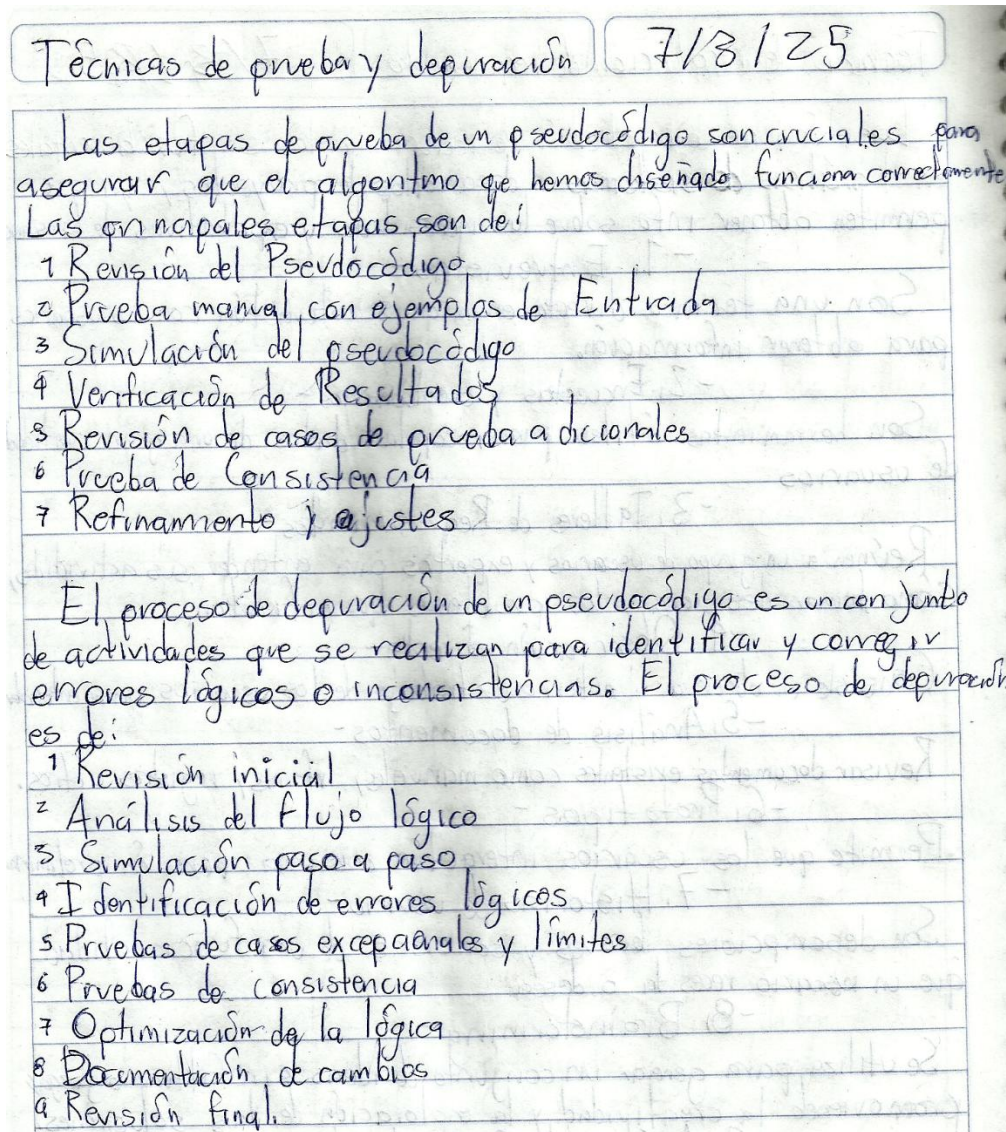 Técnicas de prueba y depuración 7/3/25
Las etapas de prueba de un pseudocódigo son cruciales para
asegurar que el algoritmo que hemos diseñado funciona correctamente
Las principales etapas son de:
1 Revisión del Pseudocódigo
2 Prueba manual con ejemplos de Entrada
3 Simulación del pseudocódigo
4 Verificación de Resultados
5 Revisión de casos de prueba adicionales
6 Prueba de Consistencia
7 Refinamiento y ajustes
El proceso de depuración de un pseudocódigo es un conjunto
de actividades que se realizan para identificar y corregir
errores lógicos o inconsistencias. El proceso de depuración
es de:
1 Revisión inicial
2 Análisis del flujo lógico
3 Simulación paso a paso
4 Identificación de errores lógicos
5 Pruebas de casos excepcionales y límites
6 Pruebas de consistencia
7 Optimización de la lógica
8 Documentación de cambios
9 Revisión final.